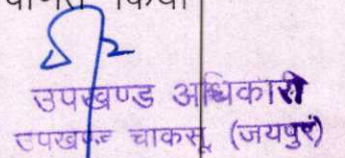 किया
उपखण्ड अधिकारी
उपखण्ड चाकसू (जयपुर)